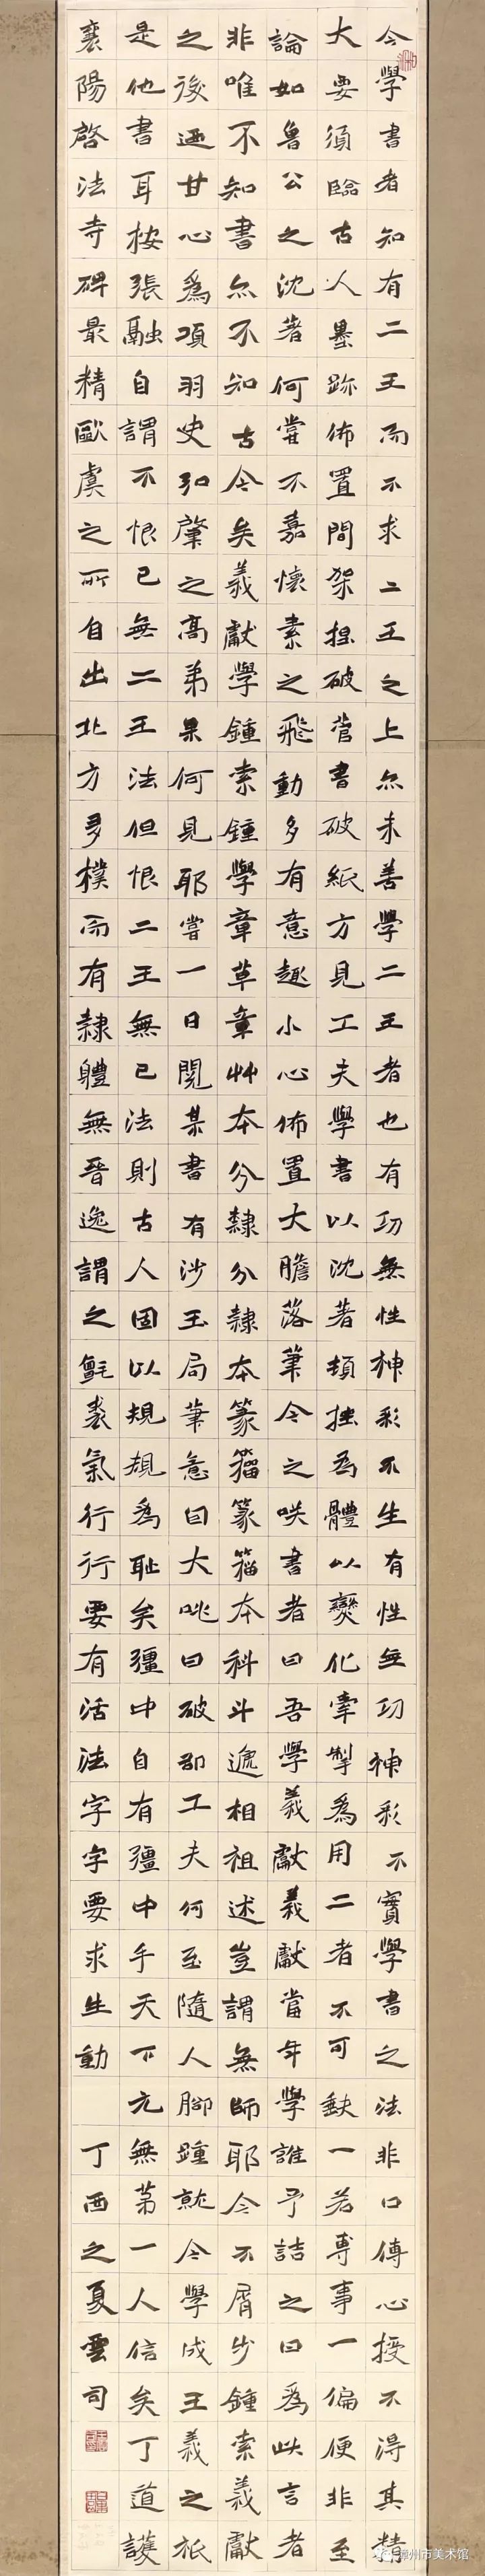 今學書者知有二王而不求二王之上亦未善學二王者也有功無性神彩不生有性無功神彩不實學書之法非口傳心授不得其精
大要須臨古人墨跡佈置間架捏破管書破紙方見工夫學書以沈著頓挫為體以變化牽掣為用二者不可缺一若專事一偏便非至
論如魯公之沈著何嘗不嘉懷素之飛動多有意趣小心佈置大膽落筆今之啖書者曰吾學羲獻羲獻當年學誰予詰之曰為此言者
非唯不知書亦不知古今矣羲獻學鍾索鍾學章草章艸本分隸分隸本篆籀篆籀本科斗遞相祖述豈謂無師耶今不屑步鍾索羲獻
之後迺甘心為項羽史弘肇之高弟果何見耶嘗一日閱某書有沙玉局筆意曰大咷曰破卻工夫何至隨人腳踵就令學成王羲之衹
是他書耳桉張融自謂不恨已無二王法但恨二王無已法則古人固以規規為恥矣彊中自有彊中手天下元無第一人信矣丁道護
襄陽啓法寺碑最精歐虞之所自出北方多樸而有隸體無晉逸謂之氈裘氣行行要有活法字字要求生動 丁酉之夏雲司
漳州市美术馆